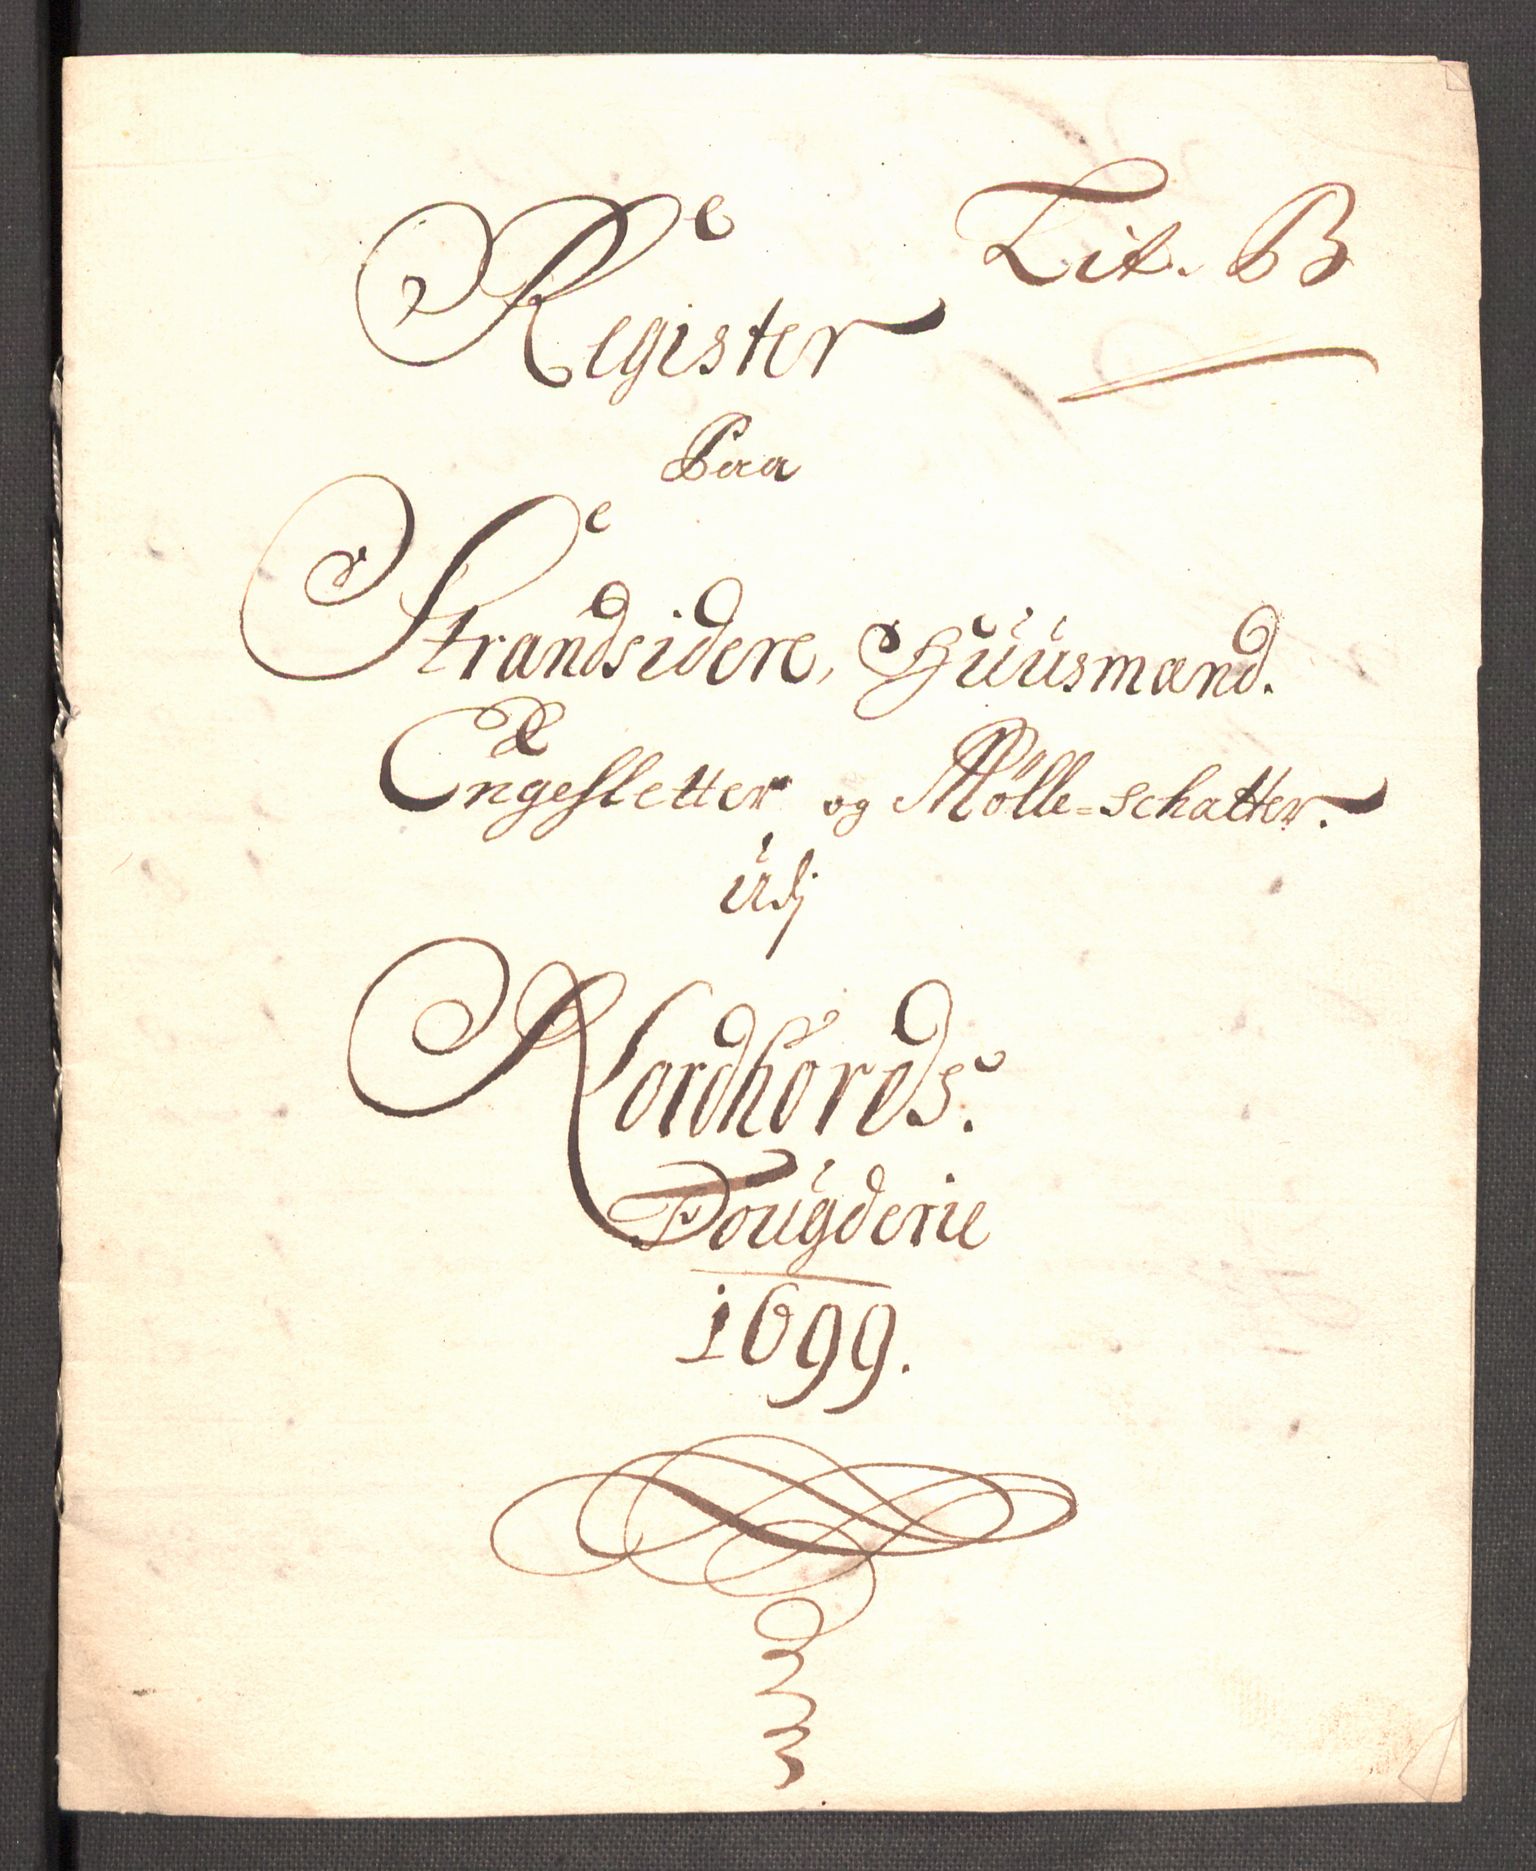 Lit. B
Register
Paa
Strandsidere, Huusmænd.
Engesletter og Mølle-schatter.
Udj
Nordhords.
Fougderie
1699.